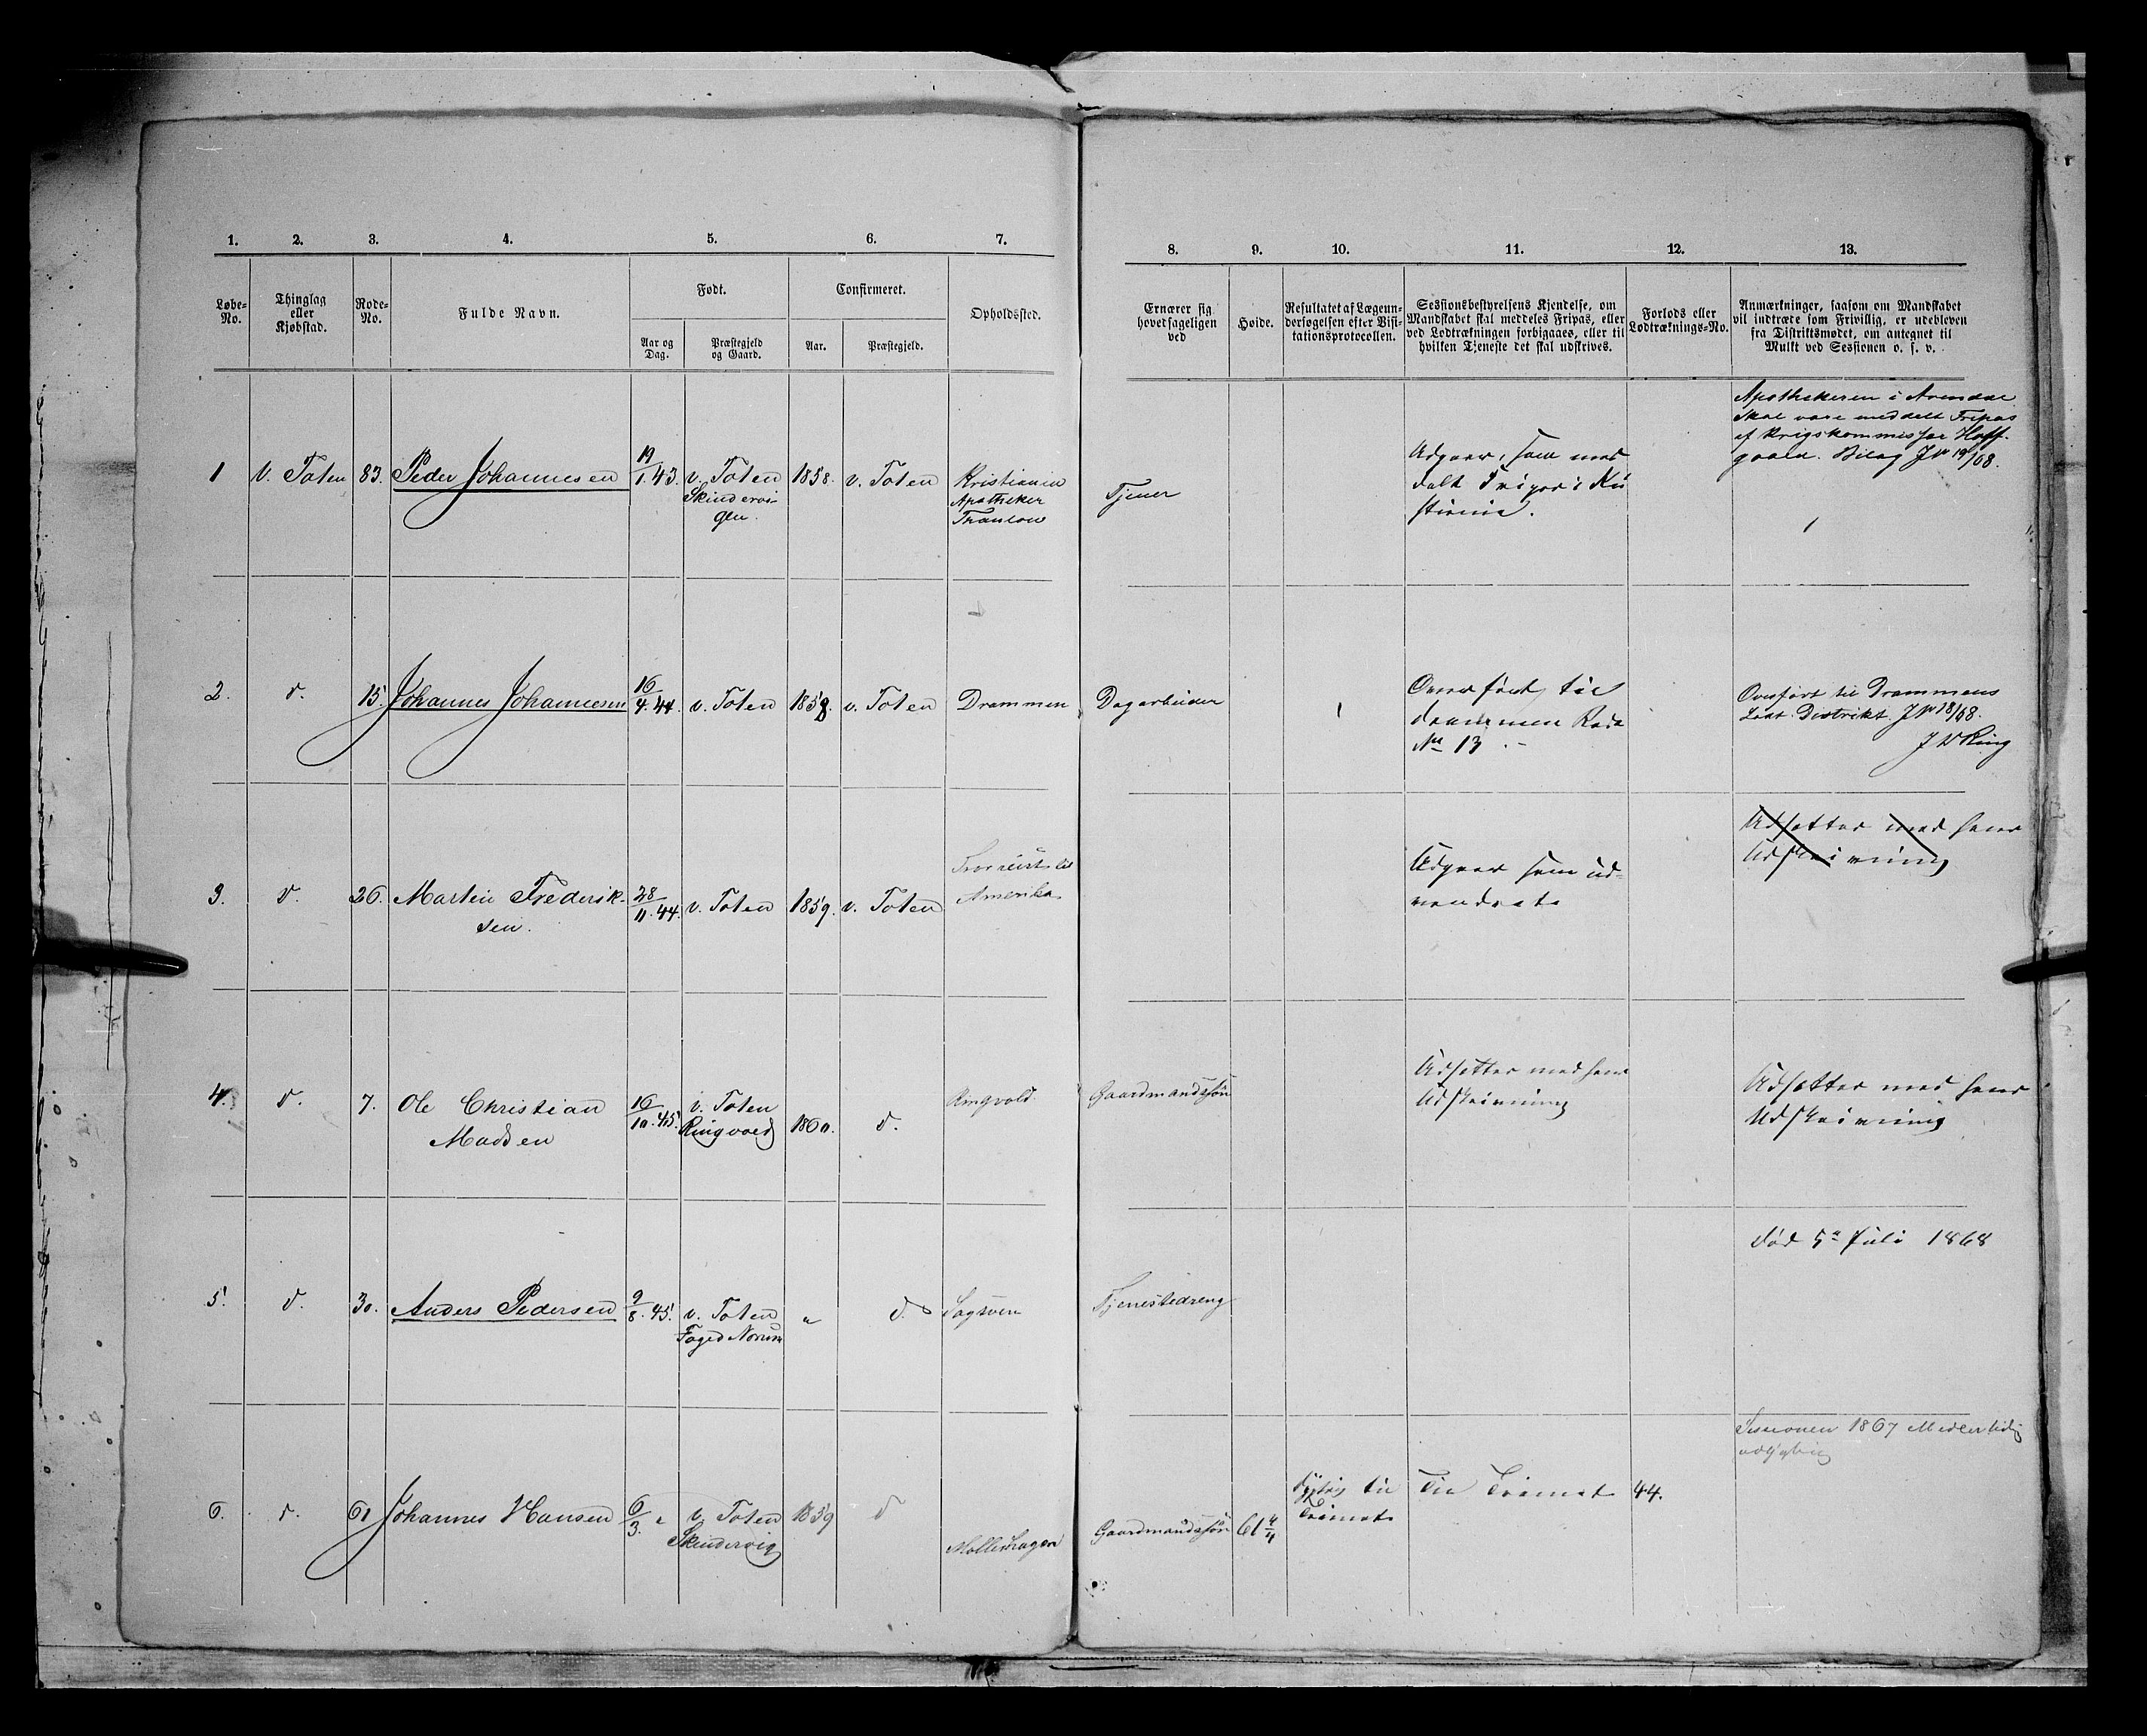 1. 2. 3. 4. 5. 6. 7.
Løbe-No.
Thinglag eller Kjøbstad.
Rode-No.
Fulde Navn.
Født.
Aar og Dag.
Præstegjeld og Gaard.
Confirmeret.
Aar.
Præstegjeld.
Opholdssted.
8. 9. 10. 11. 12. 13.
Ernærer sig hovedsageligen ved
Høide.
Resultatet af Lægeundersøgelsen efter Visitationsprotocollen.
Sessionsbestyrelsens Kjendelse, om Mandskabet skal meddeles Fripas, eller ved Lodtrækningen forbigaaes, eller til hvilken Tjeneste det skal udskrives.
Forlods eller Lodtræknings-No.
Anmærkninger, saasom om Mandskabet vil indtræde som Frivillig, er udebleven fra Distriktsmødet, om antegnet til Mulkt ved Sessionen o. s. v.
1 V. Toten 83. Peder Johannesen 19/1. 43. v. Toten 1858. v. Toten Kristiania
Skindervi-
gen.
Apotheker
Tjener
Udgaar, som med
delt Fripas i Kri
stiania.
Apothekeren i Arendal
skal være meddelt Fripas
af Krigskommissær Hoff-
gaard. Bilag J No 19/68.
2. d. 15. Johannes Johannesen 16/4. 44. v. Toten 1858. v. Toten Drammen
Dagarbeider
Overført til
Drammen Rode
No 13.
Overført til Drammens
Lodt. Distrikt. J No 18/68.
3. d. 26. Martin Frederik-
sen. 28/11. 44. v. Toten 1859. v. Toten
Amerika
Udgaar som ud-
vandret
Udsættes med hans
Udskrivning
4. d. 7. Ole Christian
Madsen 16/10. 45. v. Toten
Ringvold 1860. d. Ringvold
Gaardmandssøn
Udsættes med hans
Udskrivning
Udsættes med hans
Udskrivning
5. d. 30. Anders Pedersen 9/8. 45. v. Toten
d.
Tjenestedreng
død 5te Juli 1868
6. d. 61 Johannes Hansen 6/3. " v. Toten 1859 d
Skindervig
Møllerhagen
Gaardmandssøn 61 4/4
Dygtig til
Trainet
Til Trainet 44.
Sessionen 1867 Midlertidig
udygtig